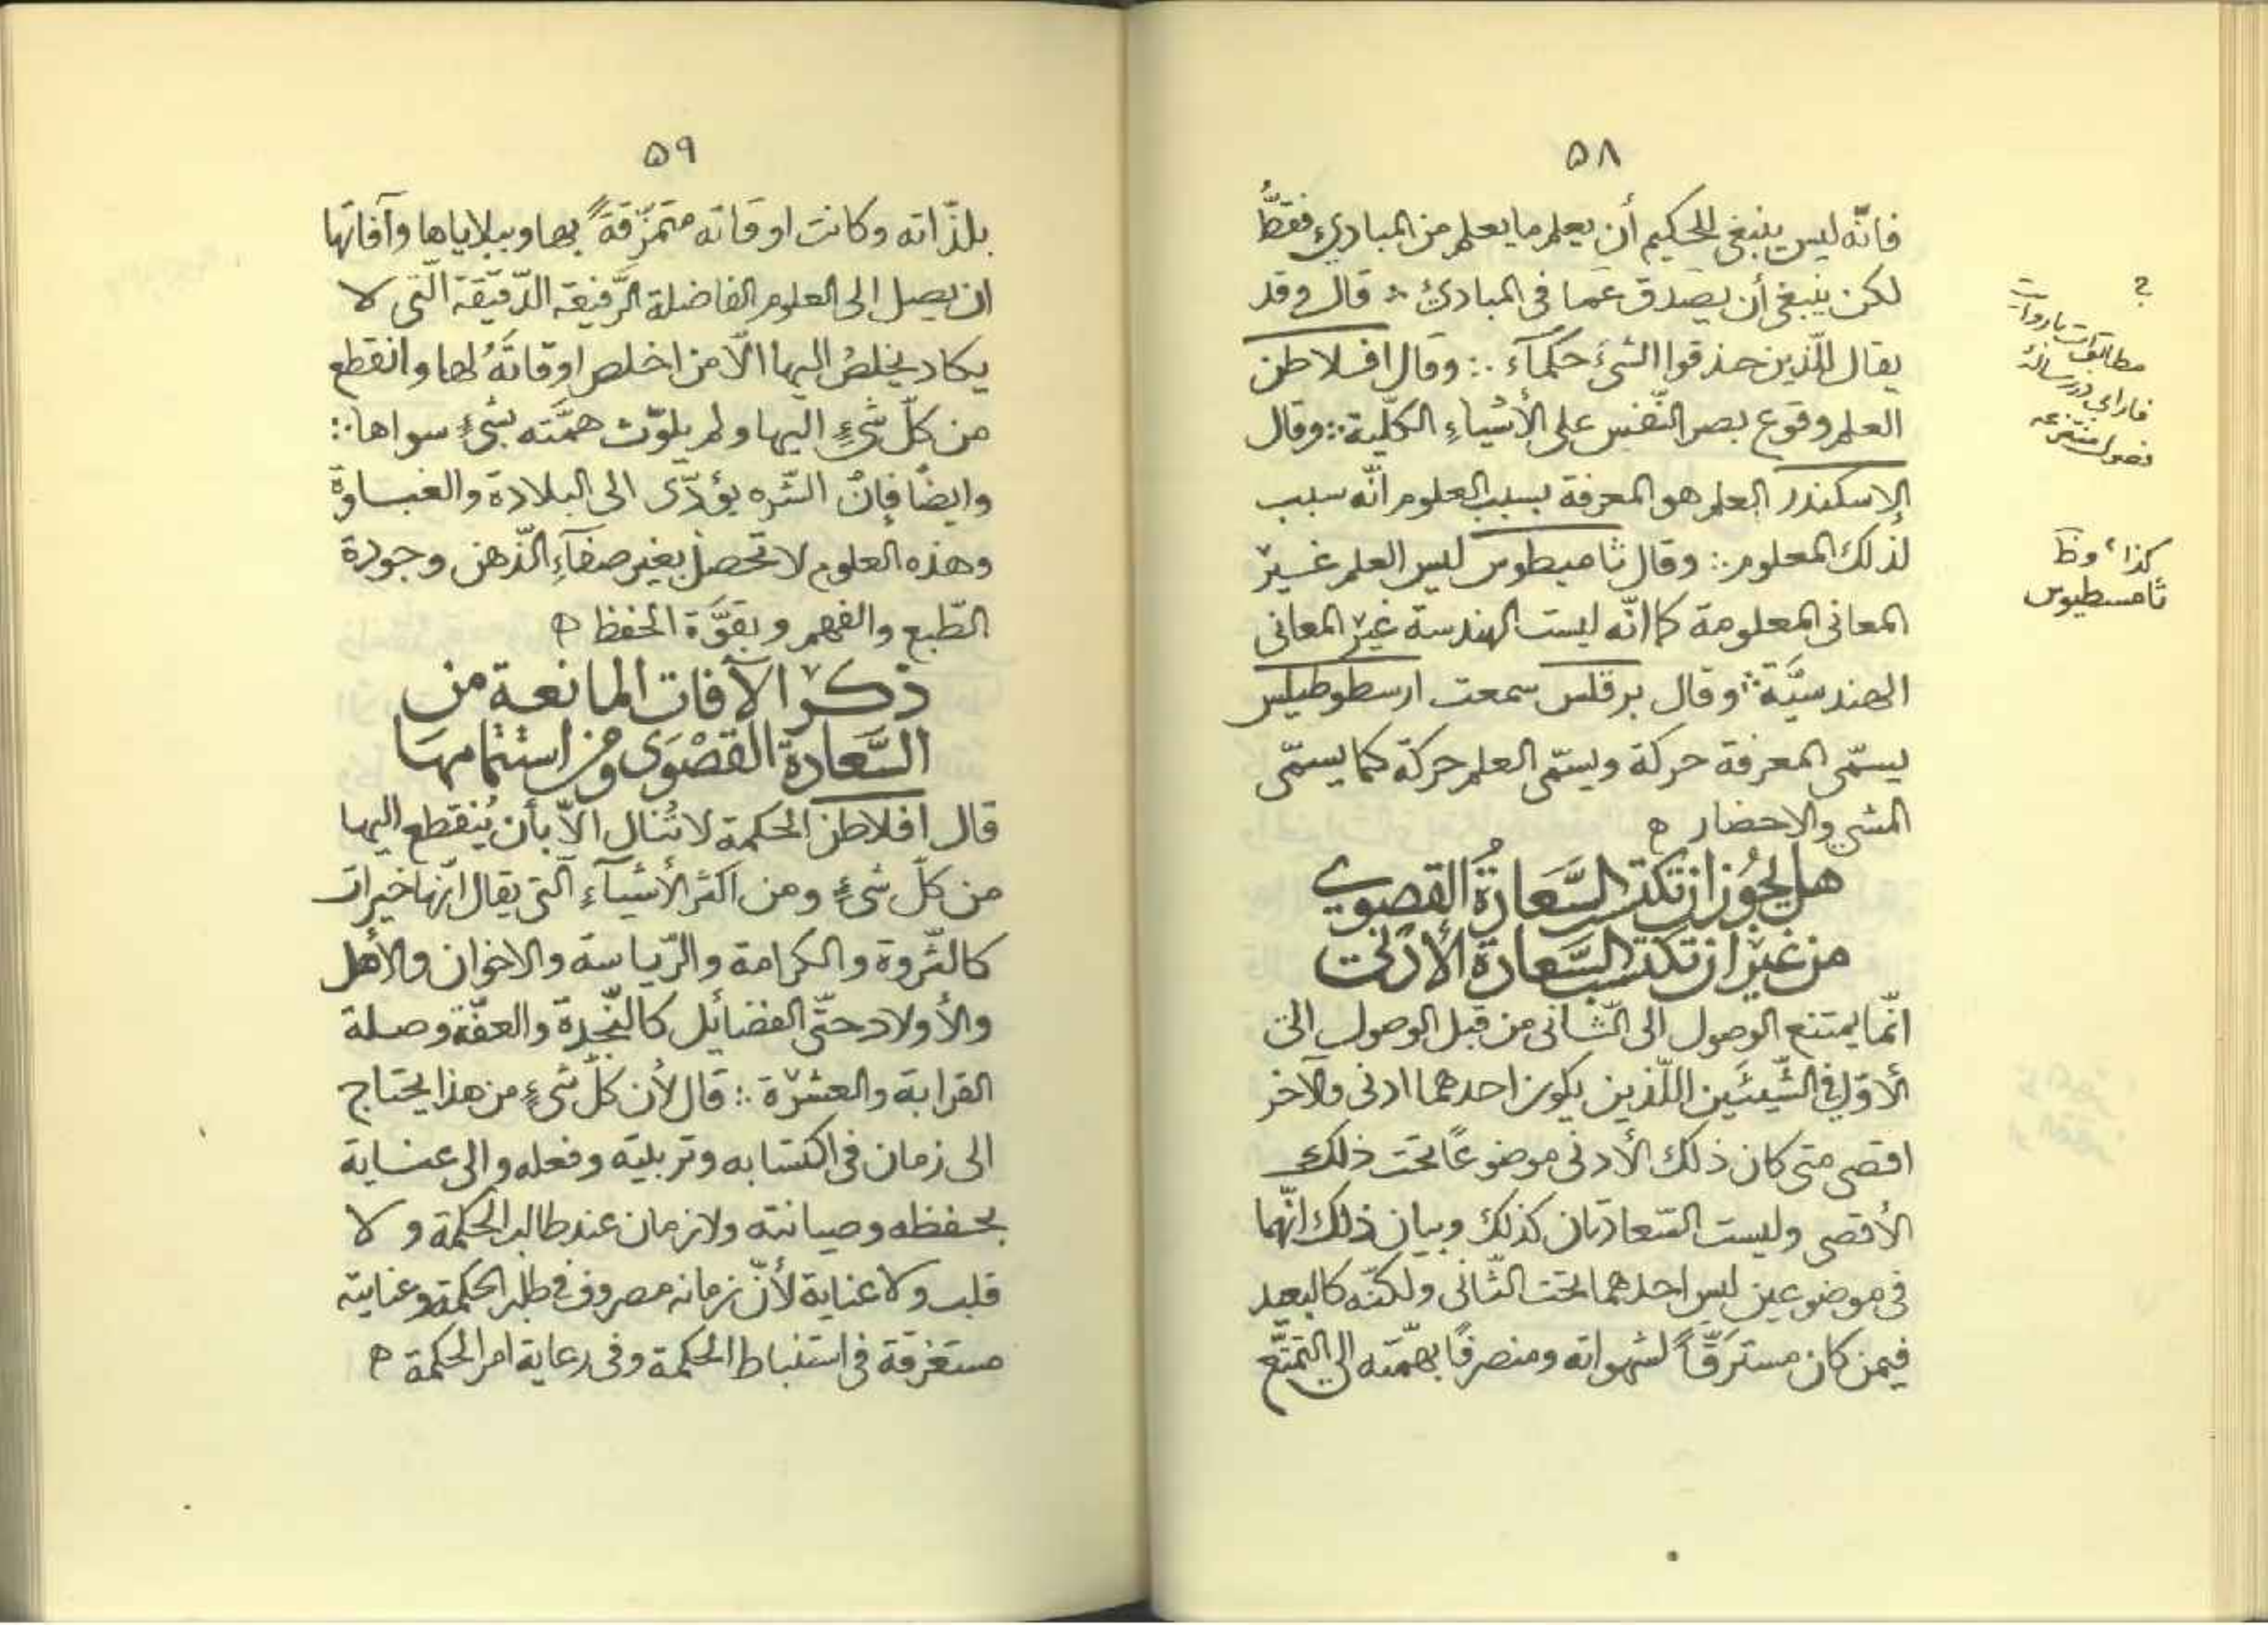 ٥٨
فانّه ليس ينبغى للحكيم أن يعلم ما يعلم من المبادئ فقطّ
لكن ينبغى أن يصدق عما فى المبادئ ∴ قال وقد
يقال للّذين حذقوا الشئ حكمآء ∴ وقال افلاطن
العلم وقوع بصر النّفس على الأشياء الكلّية ∴ وقال
الإسكندر العلم هو المعرفة بسبب العلوم انّه سبب
لذلك المعلوم ∴ وقال ثاميطوس ليس العلم غير
المعانى المعلومة كما انّه ليست الهندسة غير المعانى
الهندسيّة ∴ وقال برقلس سمعت ارسطوطيلس
يسمّى المعرفة حركة ويسمّى العلم حركة كما يسمّى
المشى والاحضار ه
هل يجوز ان تكتسب السّعادة القصوى
من غير ان تكتسب السّعادة الأدنى
انّما يمتنع الوصول الى الثّانى من قبل الوصول الى
الأوّل فى الشّيئين اللّذين يكون احدهما ادنى والآخر
اقصى متى كان ذلك الأدنى موضوعًا تحت ذلك
الأقصى وليست السّعادتان كذلك وبيان ذلك انّهما
فى موضوعين ليس احدهما تحت الثّانى ولكنّه كالبعيد
فيمن كان مسترقًّا لشهواته ومنصرفًا بهمّته الى التمتّع
؟
مطابق است با روايت
فارابى در رساله
فصول منتزعه
كذا، وظ
ثامسطيوس
٥٩
بلذّاته وكانت اوقاته متمزّقةً بها وببلاياها وآفاتها
ان يصل الى العلوم الفاضلة الرّفيعة الدّقيقة الّتى لا
يكاد يخلص اليها الّا من اخلص اوقاتهُ لها وانقطع
من كلّ شئٍ اليها ولم يلوّث همّته بشئٍ سواها ∴
وايضًا فإنّ الشّره يؤدّى الى البلادة والغباوة
وهذه العلوم لا تحصل بغير صفآءِ الذّهن وجودة
الطّبع والفهم وبقوّة الحفظ ه
ذكر الآفات المانعة من
السّعادة القصوى ومن استتمامها
قال افلاطن الحكمة لا تُنال الّا بأن يُنقطع اليها
من كلّ شئٍ ومن اكثر الأشيآءِ الّتى يقال انّها خيرات
كالثّروة والكرامة والرّياسة والاخوان والأهل
والأولاد حتّى الفضائل كالنّجدة والعفّة وصلة
القرابة والعشرة ∴ قال لأن كلّ شئٍ من هذا يحتاج
الى زمان فى اكتسابه وتربيته وفعله والى عناية
بحفظه وصيانته ولا زمان عند طالب الحكمة ولا
قلب ولا عناية لأنّ زمانه مصروف فى طلب الحكمة وعنايته
مستغرقة فى استنباط الحكمة وفى رعاية امر الحكمة ه